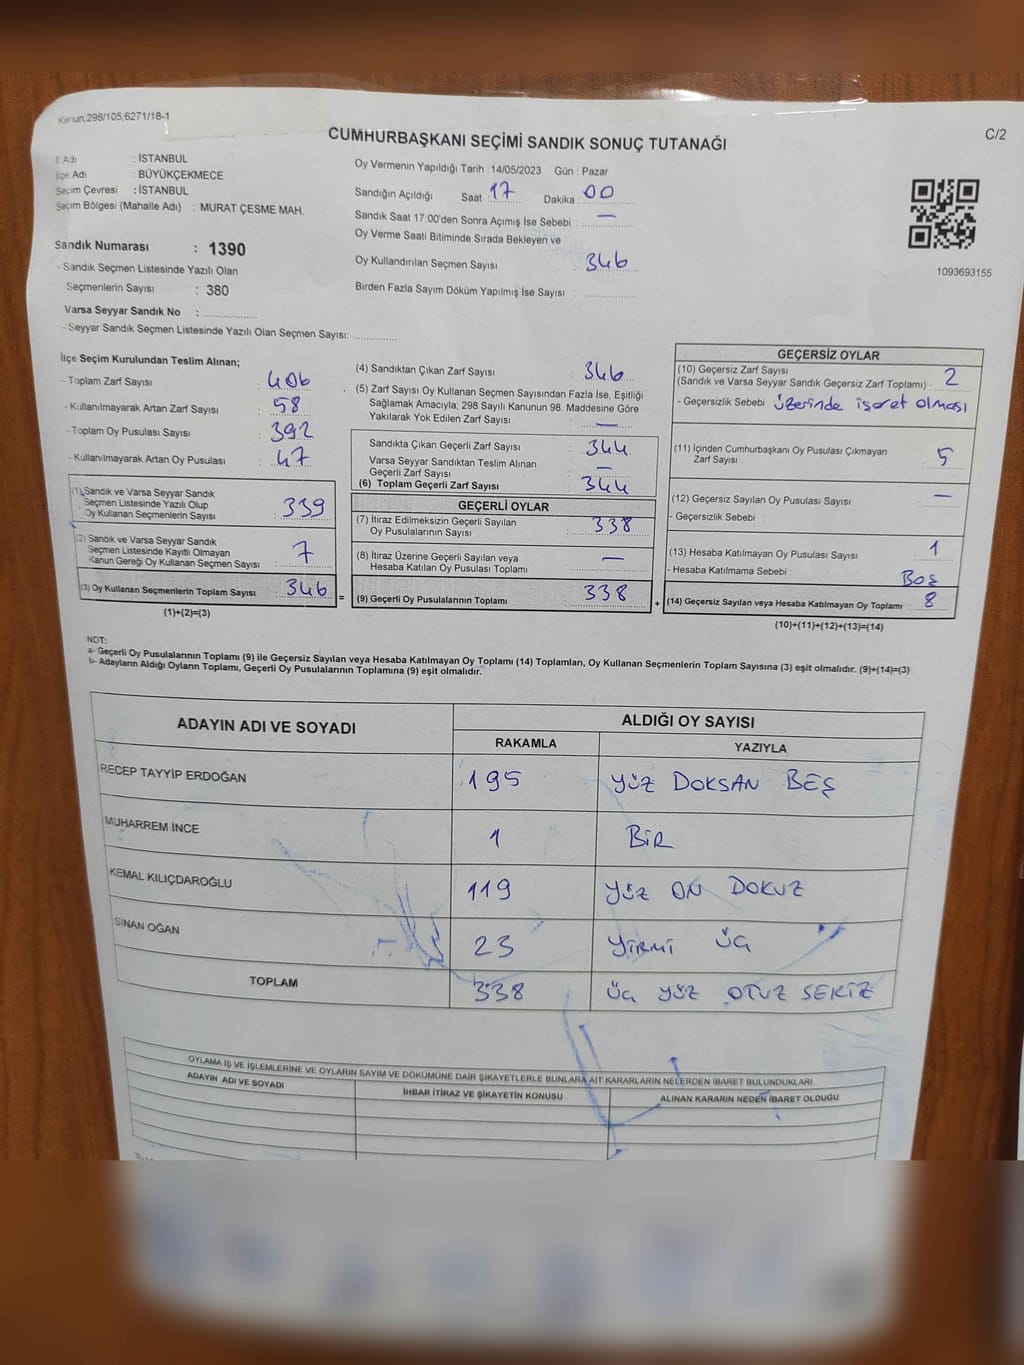 Kanun;298/105;6271/18-1
C/2
CUMHURBAŞKANI SEÇİMİ SANDIK SONUÇ TUTANAĞI
İl Adı : İSTANBUL
İlçe Adı : BÜYÜKÇEKMECE
Seçim Çevresi : İSTANBUL
Seçim Bölgesi (Mahalle Adı) : MURAT ÇEŞME MAH.
Sandık Numarası : 1390
- Sandık Seçmen Listesinde Yazılı Olan
Seçmenlerin Sayısı : 380
Varsa Seyyar Sandık No :
- Seyyar Sandık Seçmen Listesinde Yazılı Olan Seçmen Sayısı:
Oy Vermenin Yapıldığı Tarih : 14/05/2023 Gün : Pazar
Sandığın Açıldığı Saat : 17 Dakika : 00
Sandık Saat 17:00'den Sonra Açımış İse Sebebi : —
Oy Verme Saati Bitiminde Sırada Bekleyen ve
Oy Kullandırılan Seçmen Sayısı : 346
Birden Fazla Sayım Döküm Yapılmış İse Sayısı :
1093693155
İlçe Seçim Kurulundan Teslim Alınan;
- Toplam Zarf Sayısı : 406
- Kullanılmayarak Artan Zarf Sayısı : 58
- Toplam Oy Pusulası Sayısı : 392
- Kullanılmayarak Artan Oy Pusulası : 47
(1) Sandık ve Varsa Seyyar Sandık
Seçmen Listesinde Yazılı Olup
Oy Kullanan Seçmenlerin Sayısı : 339
(2) Sandık ve Varsa Seyyar Sandık
Seçmen Listesinde Kayıtlı Olmayan
Kanun Gereği Oy Kullanan Seçmen Sayısı : 7
(3) Oy Kullanan Seçmenlerin Toplam Sayısı : 346 =
(1)+(2)=(3)
(4) Sandıktan Çıkan Zarf Sayısı : 346
(5) Zarf Sayısı Oy Kullanan Seçmen Sayısından Fazla İse, Eşitliği
Sağlamak Amacıyla; 298 Sayılı Kanunun 98. Maddesine Göre
Yakılarak Yok Edilen Zarf Sayısı : —
Sandıkta Çıkan Geçerli Zarf Sayısı : 344
Varsa Seyyar Sandıktan Teslim Alınan
Geçerli Zarf Sayısı : —
(6) Toplam Geçerli Zarf Sayısı : 344
GEÇERLİ OYLAR
(7) İtiraz Edilmeksizin Geçerli Sayılan
Oy Pusulalarının Sayısı : 338
(8) İtiraz Üzerine Geçerli Sayılan veya
Hesaba Katılan Oy Pusulası Toplamı : —
(9) Geçerli Oy Pusulalarının Toplamı : 338 +
GEÇERSİZ OYLAR
(10) Geçersiz Zarf Sayısı
(Sandık ve Varsa Seyyar Sandık Geçersiz Zarf Toplamı) : 2
- Geçersizlik Sebebi : üzerinde işaret olması
(11) İçinden Cumhurbaşkanı Oy Pusulası Çıkmayan
Zarf Sayısı : 5
(12) Geçersiz Sayılan Oy Pusulası Sayısı : —
- Geçersizlik Sebebi :
(13) Hesaba Katılmayan Oy Pusulası Sayısı : 1
- Hesaba Katılmama Sebebi : Boş
(14) Geçersiz Sayılan veya Hesaba Katılmayan Oy Toplamı : 8
(10)+(11)+(12)+(13)=(14)
NOT:
a- Geçerli Oy Pusulalarının Toplamı (9) ile Geçersiz Sayılan veya Hesaba Katılmayan Oy Toplamı (14) Toplamları, Oy Kullanan Seçmenlerin Toplam Sayısına (3) eşit olmalıdır. (9)+(14)=(3)
b- Adayların Aldığı Oyların Toplamı, Geçerli Oy Pusulalarının Toplamına (9) eşit olmalıdır.
ADAYIN ADI VE SOYADI ALDIĞI OY SAYISI
RAKAMLA YAZIYLA
RECEP TAYYİP ERDOĞAN 195 YÜZ DOKSAN BEŞ
MUHARREM İNCE 1 BİR
KEMAL KILIÇDAROĞLU 119 YÜZ ON DOKUZ
SİNAN OĞAN 23 YİRMİ ÜÇ
TOPLAM 338 ÜÇ YÜZ OTUZ SEKİZ
OYLAMA İŞ VE İŞLEMLERİNE VE OYLARIN SAYIM VE DÖKÜMÜNE DAİR ŞİKAYETLERLE BUNLARA AİT KARARLARIN NELERDEN İBARET BULUNDUKLARI
ADAYIN ADI VE SOYADI İHBAR İTİRAZ VE ŞİKAYETİN KONUSU ALINAN KARARIN NEDEN İBARET OLDUĞU